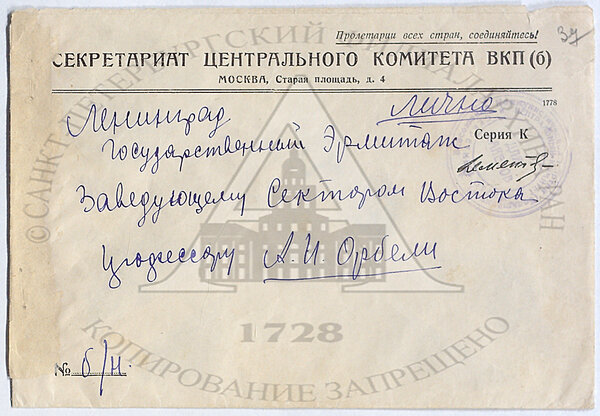 Пролетарии всех стран, соединяйтесь!
37
СЕКРЕТАРИАТ ЦЕНТРАЛЬНОГО КОМИТЕТА ВКП(б)
МОСКВА, Старая площадь, д. 4
Лично
1778
Ленинград
Серия К
Государственный Эрмитаж
Заведующему Сектором Востока
профессору А.И. Орбели
№ б/н.
© САНКТ-ПЕТЕРБУРГСКИЙ ФИЛИАЛ АРХИВА РАН
1728
КОПИРОВАНИЕ ЗАПРЕЩЕНО